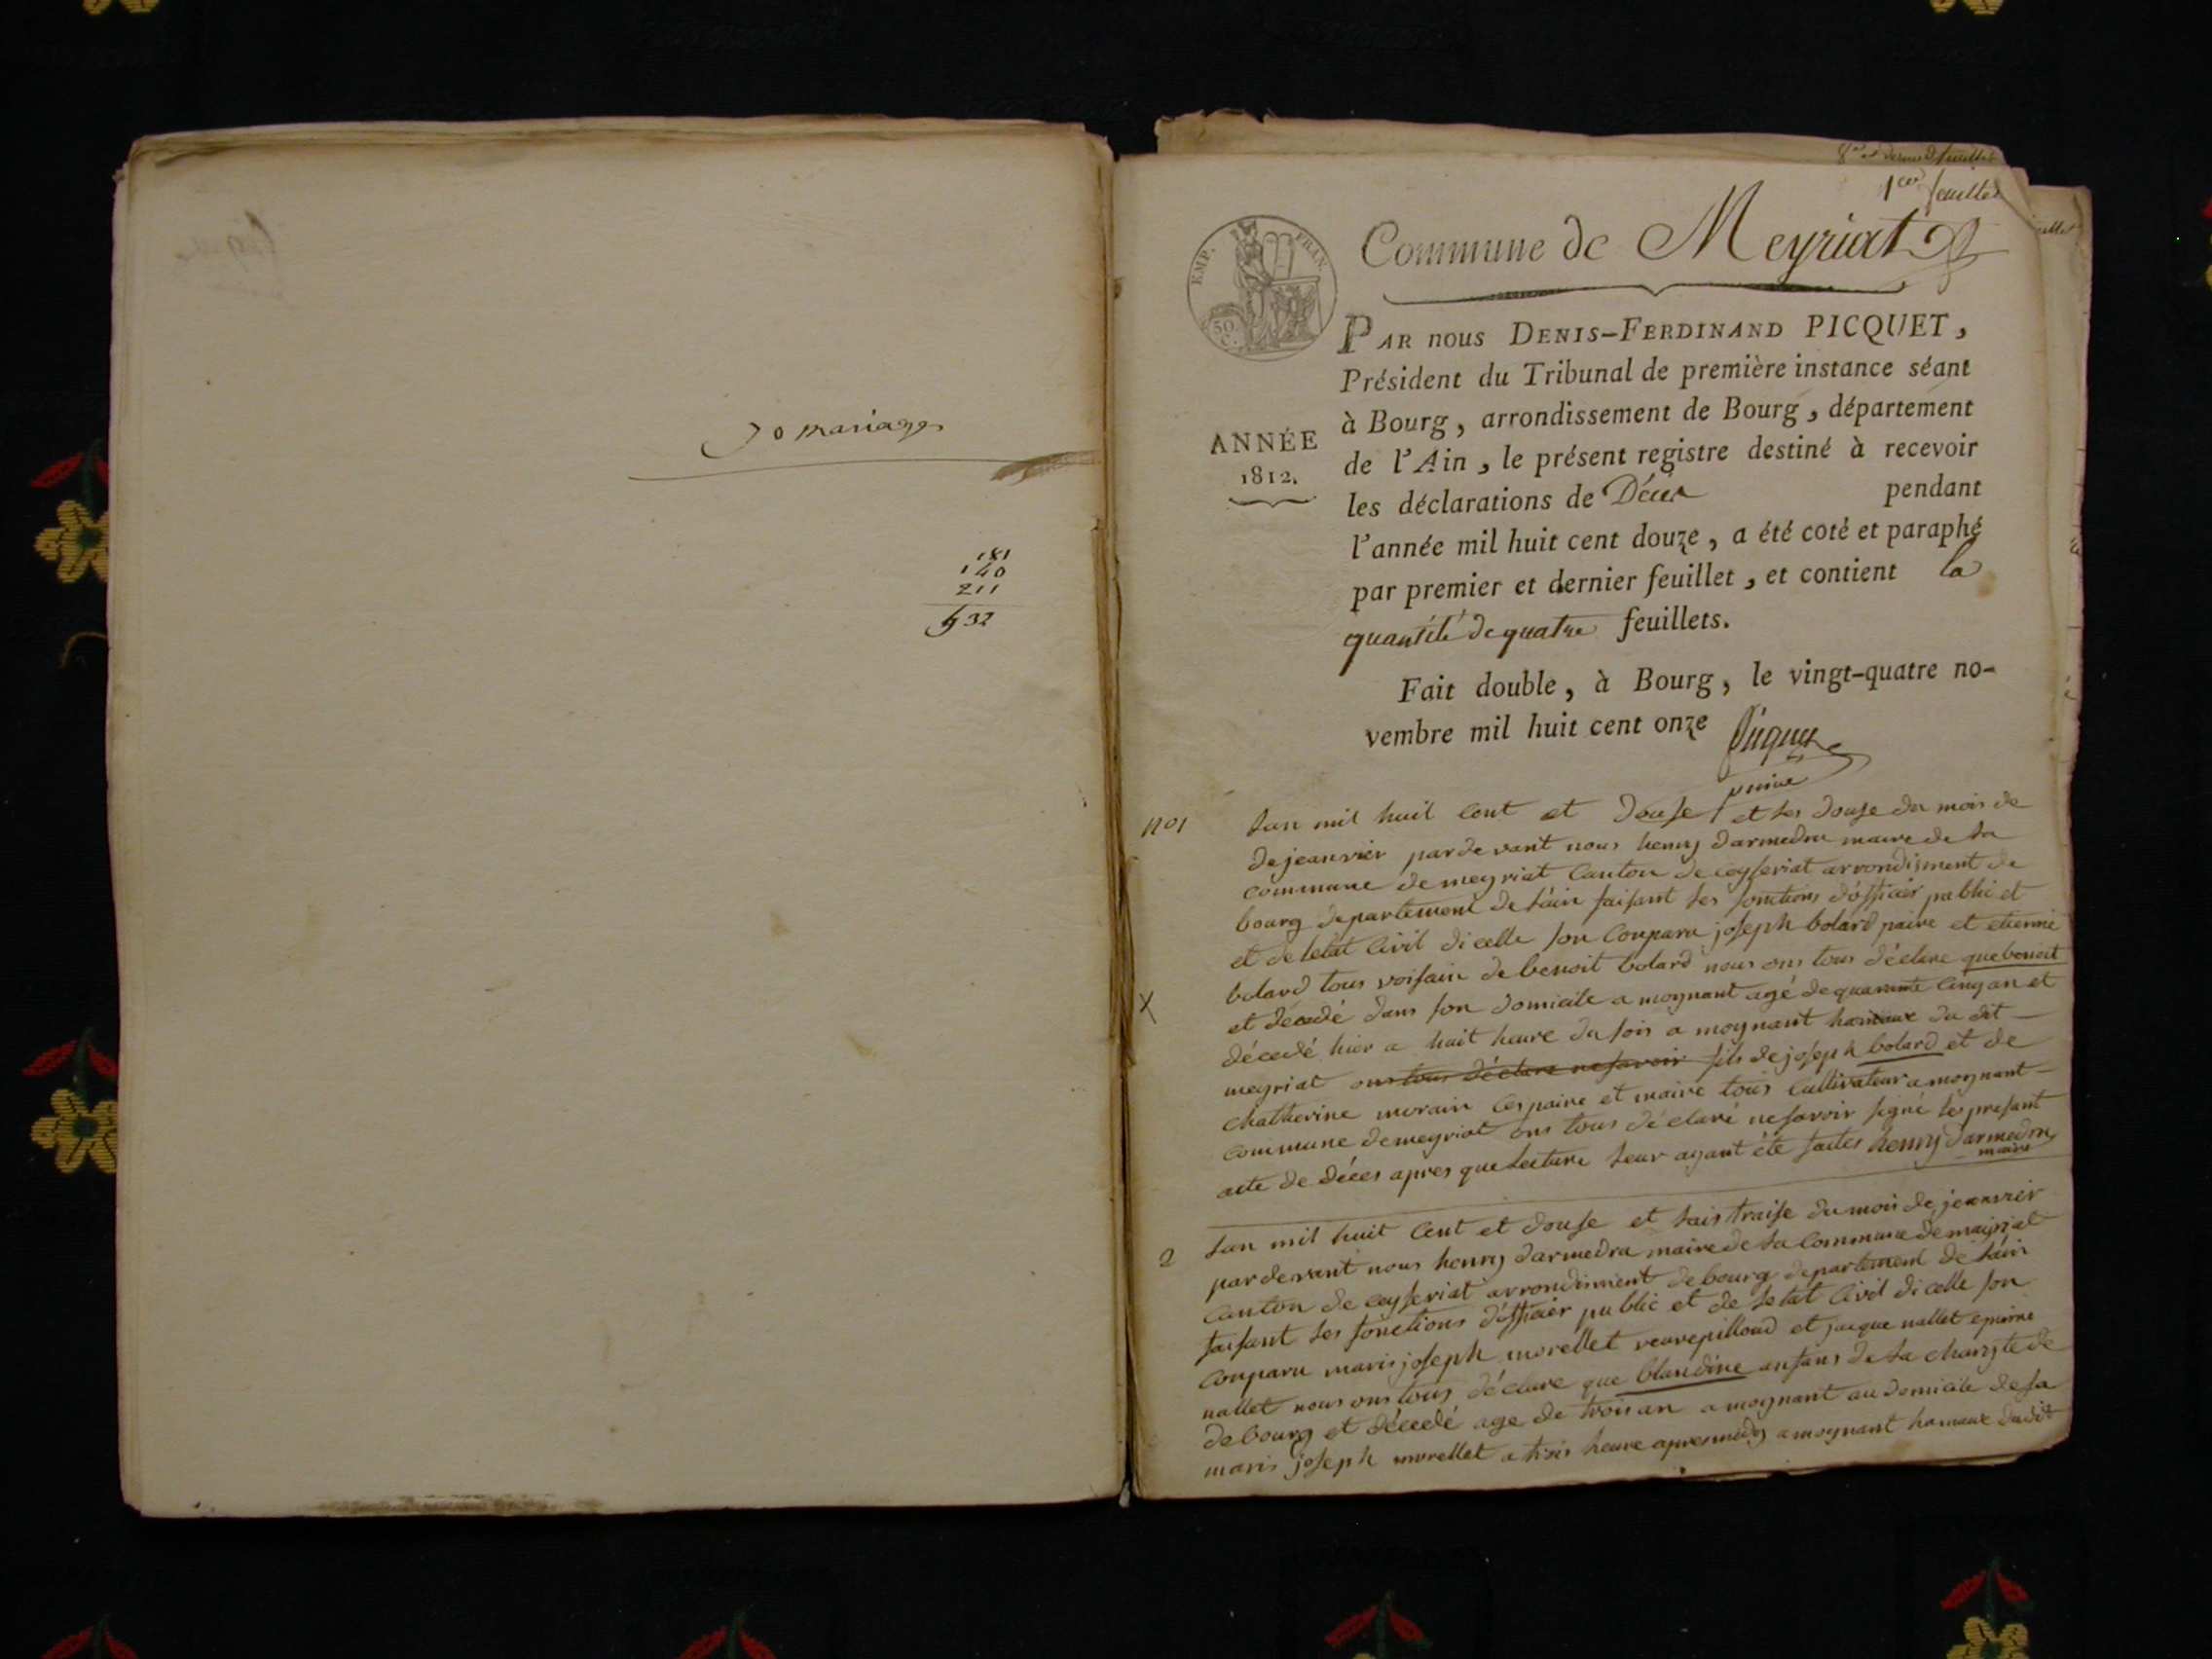 70 mariages
181
140
211
532
8e et dernier feuillet
1er feuillet
EMP. FRAN.
50 C.
Commune de Meyriat
ANNÉE
1812.
PAR nous DENIS-FERDINAND PICQUET,
Président du Tribunal de première instance séant
à Bourg, arrondissement de Bourg, département
de l'Ain, le présent registre destiné à recevoir
les déclarations de Décès pendant
l'année mil huit cent douze, a été coté et paraphé
par premier et dernier feuillet, et contient la
quantité de quatre feuillets.
Fait double, à Bourg, le vingt-quatre no-
vembre mil huit cent onze
Picquet
no 1
Lan mil huit cent et douse et les douse du mois de
de jeanvier par devant nous henry darmedra maire de la
commune de meyriat Canton de ceyseriat arrondisment de
bourg departement de láin faisant les fonctions dófficier public et
et de letat Civil dicelle son Comparu joseph bolard paire et etienne
bolard tous voisain de benoit bolard nous ons tous déclare que benoit
X
et décédé dans son domicile a moynant agé de quarante Cinq an et
décedé hier a huit heure du soir a moynant hamaux du dit
meyriat ons tous déclare ne savoir fils de joseph bolard et de
Chatherine morain Ces paire et maire tous Cultivateur a moynant
commune de meyriat ons tous déclaré ne savoir signé les presant
acte de déces apres que lecture leur ayant été faites henry darmedra
maire
2
Lan mil huit Cent et douse et lais traise du mois de jeanvier
par devant nous henry darmedra maire de la Commune de maiyriat
Canton de ceyseriat arrondiment de bourg departement de láin
faisant les fonctions dófficier public et de letat Civil dicelle son
Comparu maris joseph morellet veuve pilloud et jacque nallet
nallet nous ons tous déclare que blandine ansans de la charyte de
de bourg et décedé age de trois an a moynant au domicile de sa
maris joseph morellet a trois heure apres midy a moynant hamaux dudit